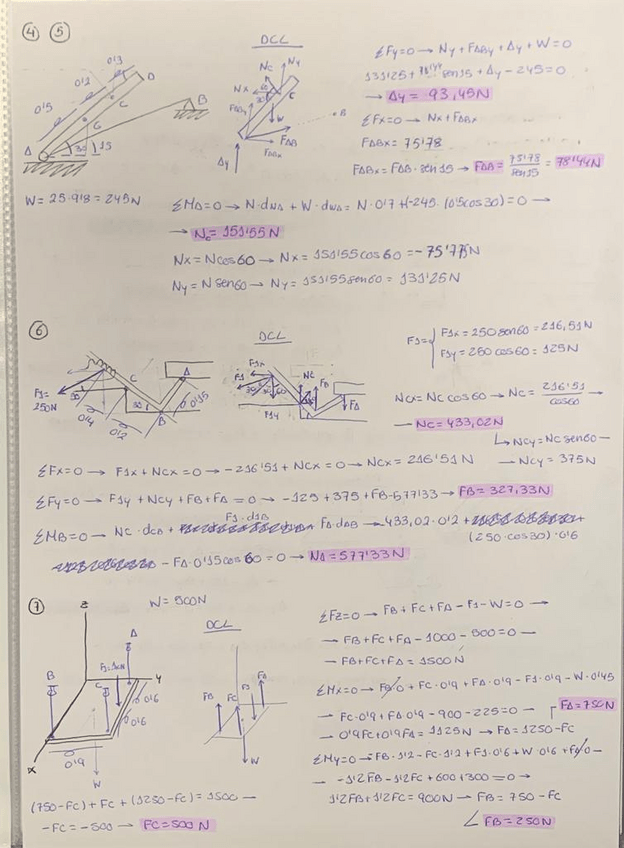 ④ ⑤
DCL
0'3
0'2
0'5
D
C
G
B
A
30
15
Ny
Nc
Nx
60
30
C
W
B
FABy
FAB
FABx
Ay
ΣFy=0 → Ny + FABy + Ay + W=0
131'25 + 78'44 sen15 + Ay - 245=0
→ Ay = 93,45N
ΣFx=0 → Nx + FABx
FABx = 75'78
FABx = FAB · sen15 → FAB = 75'78/sen15 = 78'44N
W= 25·9'8 = 245N
ΣMA=0 → N·dNA + W·dWA = N·0'7 + (-245·(0'5cos30)=0 →
→ Nc = 151'55N
Nx = Ncos60 → Nx = 151'55cos60 = -75'77N
Ny = N sen60 → Ny = 151'55sen60 = 131'25N
⑥
DCL
F1=
250N
C
A
B
30
0'4
0'2
0'15
F1x
F1
30
60
F1y
Nc
FB
FA
F1= F1x = 250sen60 = 216,51N
F1y = 250 cos60 = 125N
Ncx = Nc cos60 → Nc = 216'51/cos60 →
→ Nc = 433,02N
↳ Ncy = Nc sen60 —
→ Ncy = 375N
ΣFx=0 → F1x + Ncx = 0 → -216'51 + Ncx = 0 → Ncx = 216'51N
ΣFy=0 → F1y + Ncy + FB + FA = 0 → -125 + 375 + FB - 577'33 → FB = 327,33N
F1·d1B
ΣMB=0 → Nc · dCB + FA·dAB → 433,02·0'2 +
(250·cos30)·0'6
- FA·0'15cos60 = 0 → NA = 577'33N
⑦
W = 500N
DCL
Z
A
F1=1kN
B
C
Y
0'6
0'6
0'9
X
W
FB
FC
F1
FA
W
ΣFz=0 → FB + FC + FA - F1 - W=0 →
→ FB + FC + FA - 1000 - 500 = 0 →
→ FB + FC + FA = 1500N
ΣMx=0 → FB·0 + FC·0'9 + FA·0'9 - F1·0'9 - W·0'45
→ FC·0'9 + FA·0'9 - 900 - 225=0 →
FA = 750N
→ 0'9FC + 0'9FA = 1125N → FA = 1250 - FC
ΣMy=0 → FB·1'2 - FC·1'2 + F1·0'6 + W·0'6 + FA·0 →
→ -1'2FB - 1'2FC + 600 + 300 = 0 →
1'2FB + 1'2FC = 900N → FB = 750 - FC
FB = 250N
(750 - FC) + FC + (1250 - FC) = 1500 →
-FC = -500 → FC = 500N